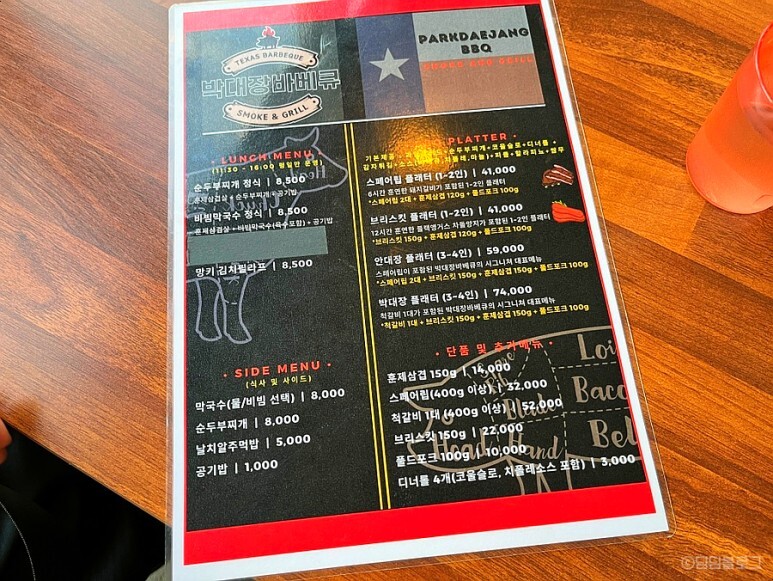 TEXAS BARBEQUE
박대장바베큐
SMOKE & GRILL
PARKDAEJANG
BBQ
· LUNCH MENU ·
(11:30 - 16:00 평일만 운영)
순두부찌개 정식 | 8,500
훈제삼겹살 + 순두부찌개 + 공기밥
비빔막국수 정식 | 8,500
훈제삼겹살 + 비빔막국수(육수포함) + 공기밥
망키 김치필라프 | 8,500
· SIDE MENU ·
(식사 및 사이드)
막국수(물/비빔 선택) | 8,000
순두부찌개 | 8,000
날치알주먹밥 | 5,000
공기밥 | 1,000
PLATTER ·
스페어립 플래터 (1-2인) | 41,000
6시간 훈연한 돼지갈비가 포함된 1-2인 플래터
*스페어립 2대 + 훈제삼겹 120g + 풀드포크 100g
브리스킷 플래터 (1-2인) | 41,000
12시간 훈연한 블랙앵거스 차돌양지가 포함된 1-2인 플래터
*브리스킷 150g + 훈제삼겹 120g + 풀드포크 100g
안대장 플래터 (3-4인) | 59,000
스페어립이 포함된 박대장바베큐의 시그니쳐 대표메뉴
*스페어립 2대 + 브리스킷 150g + 훈제삼겹 150g + 풀드포크 100g
박대장 플래터 (3-4인) | 74,000
척갈비 1대가 포함된 박대장바베큐의 시그니쳐 대표메뉴
*척갈비 1대 + 브리스킷 150g + 훈제삼겹 150g + 풀드포크 100g
· 단품 및 추가메뉴 ·
훈제삼겹 150g | 14,000
스페어립(400g 이상) | 32,000
척갈비 1대 (400g 이상) | 52,000
브리스킷 150g | 22,000
풀드포크 100g | 10,000
디너롤 4개(코울슬로, 치플레소스 포함) | 3,000
Head
Hand